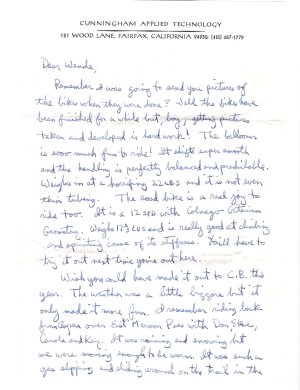 CUNNINGHAM APPLIED TECHNOLOGY
121 WOOD LANE, FAIRFAX, CALIFORNIA 94930 (415) 457-1779
Dear Wende,
Remember I was going to send you pictures of
the bikes when they were done? Well the bikes have
been finished for a while but, boy, getting pictures
taken and developed is hard work! The ballooner
is sooo much fun to ride! It shifts super smooth
and the handling is perfectly balanced and predictable.
Weighs in at a horrifying 22 LBS and it is not even
thin tubing. The road bike is a real joy to
ride too. It is a 12 SPD with Colnago
Geometry. Weighs LBS and is really good at climbing
and sprinting cause of its stiffness. You'll have to
try it out next time you're out here.
Wish you could have made it out to C.B. this
year. The weather was a little bizzare but it
only made it more fun. I remember riding back
from over East Maroon Pass with Don
Carole and Kay. It was raining and snowing but
we were moving enough to be warm. It was such a
gas slipping and sliding around on the trail in the